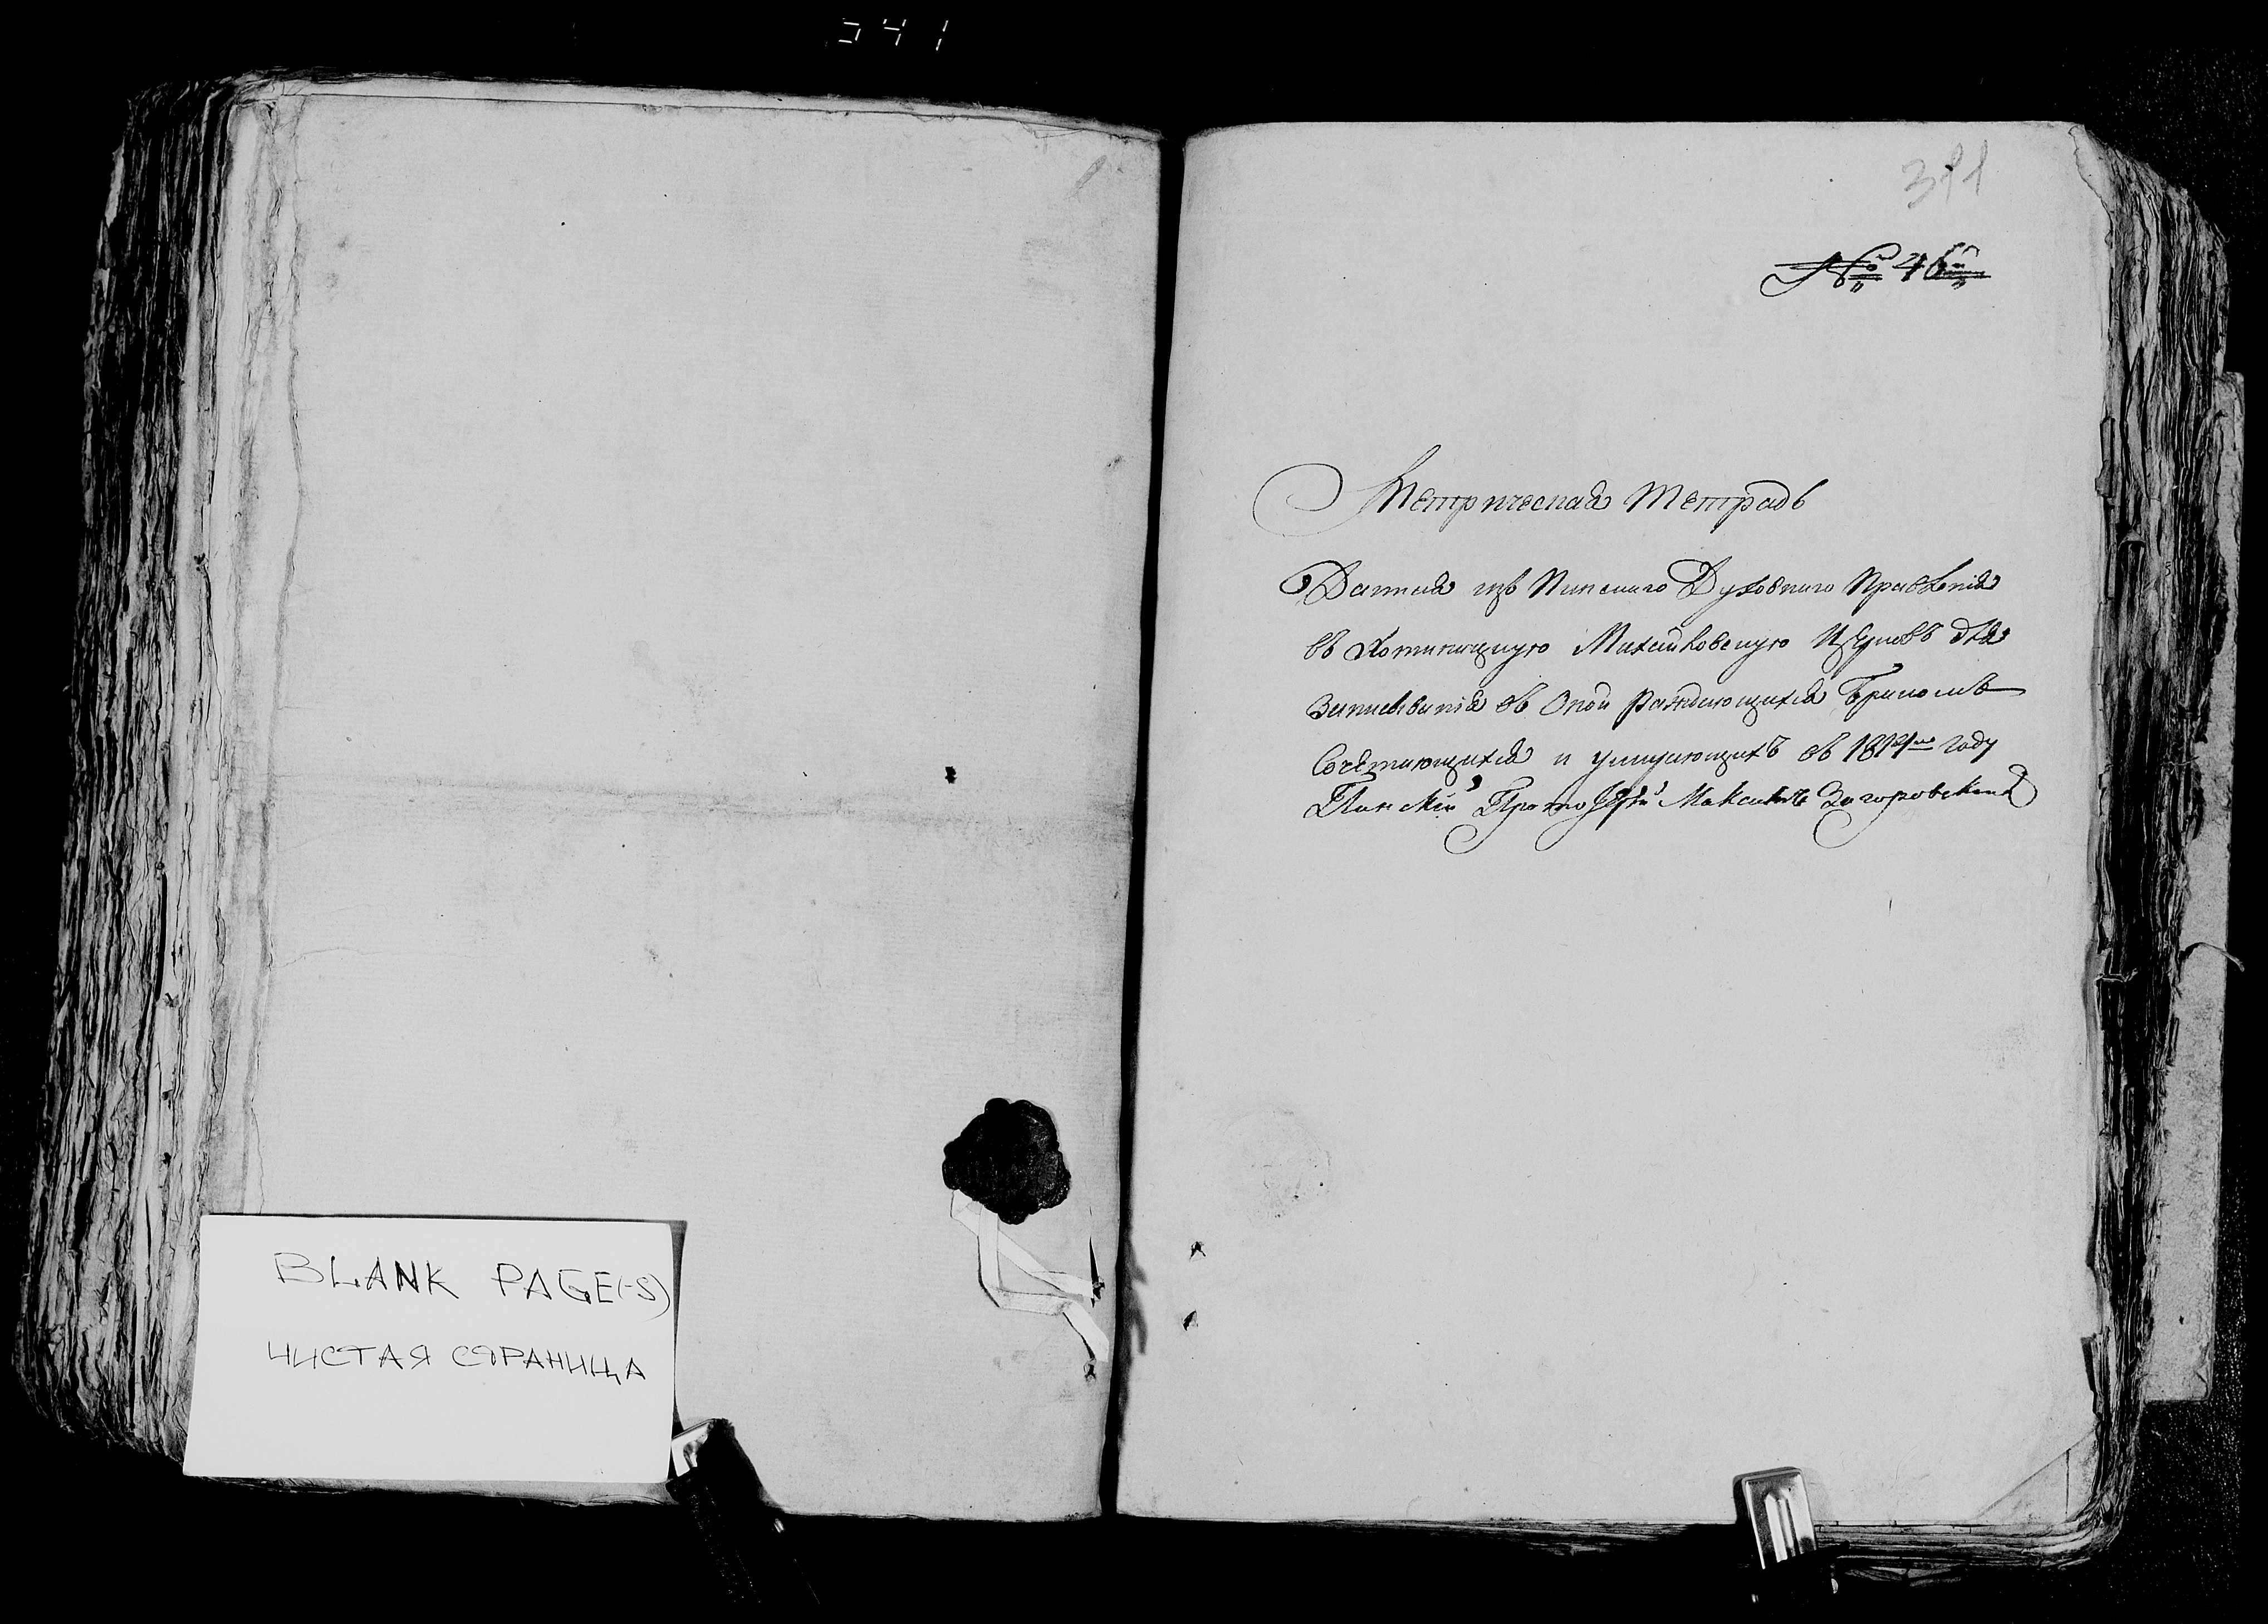 341
№ 46
Метрическая Тетрадь
Данная изъ Пинскаго Духовнаго Правленія
въ Михайловскую Церковь для
Записыванія въ Оной Раждающихся Бракомъ
Сочетающихся и умирающихъ въ году
Пинскій Протоіерей Максимъ Загоровскій
BLANK PAGE(-S)
ЧИСТАЯ СТРАНИЦА